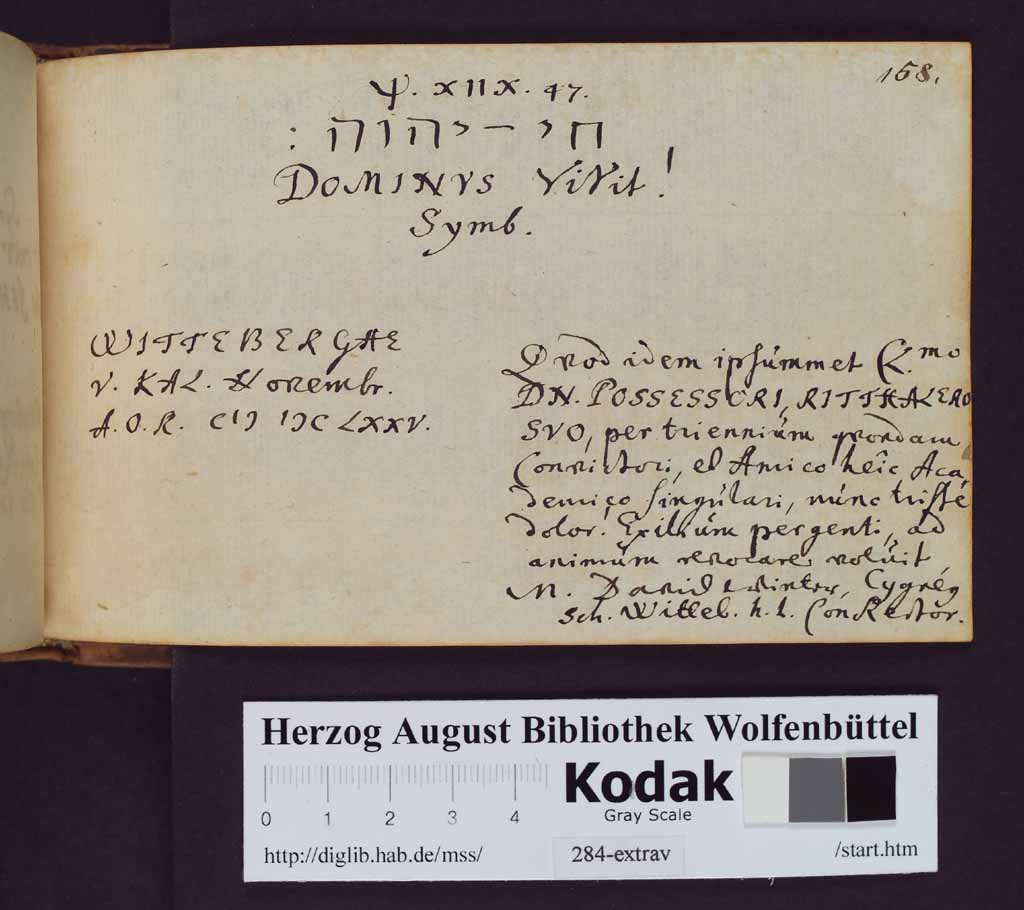 158.
Ψ. XIIX. 47.
חי־יהוה:
DOMINVS ViVit!
Symb.
WITTEBERGAE
V. KAL. Novembr.
A.O.R. CIↃ IↃC LXXV.
Qvod idem ipsúmmet Cl.mo
DN. POSSESSORI, RITTHALERO
SVO, per trienniúm qvondam
Convictori, et Amico heîc Aca
demico singúlari, núnc tristé
dolor! Exiliúm pergenti, ad
animúm revocare volúit
M. David Winter, Cygneą
Sch. Witteb. h. t. ConRector.
Herzog August Bibliothek Wolfenbüttel
0 1 2 3 4
Kodak
Gray Scale
http://diglib.hab.de/mss/
284-extrav
/start.htm